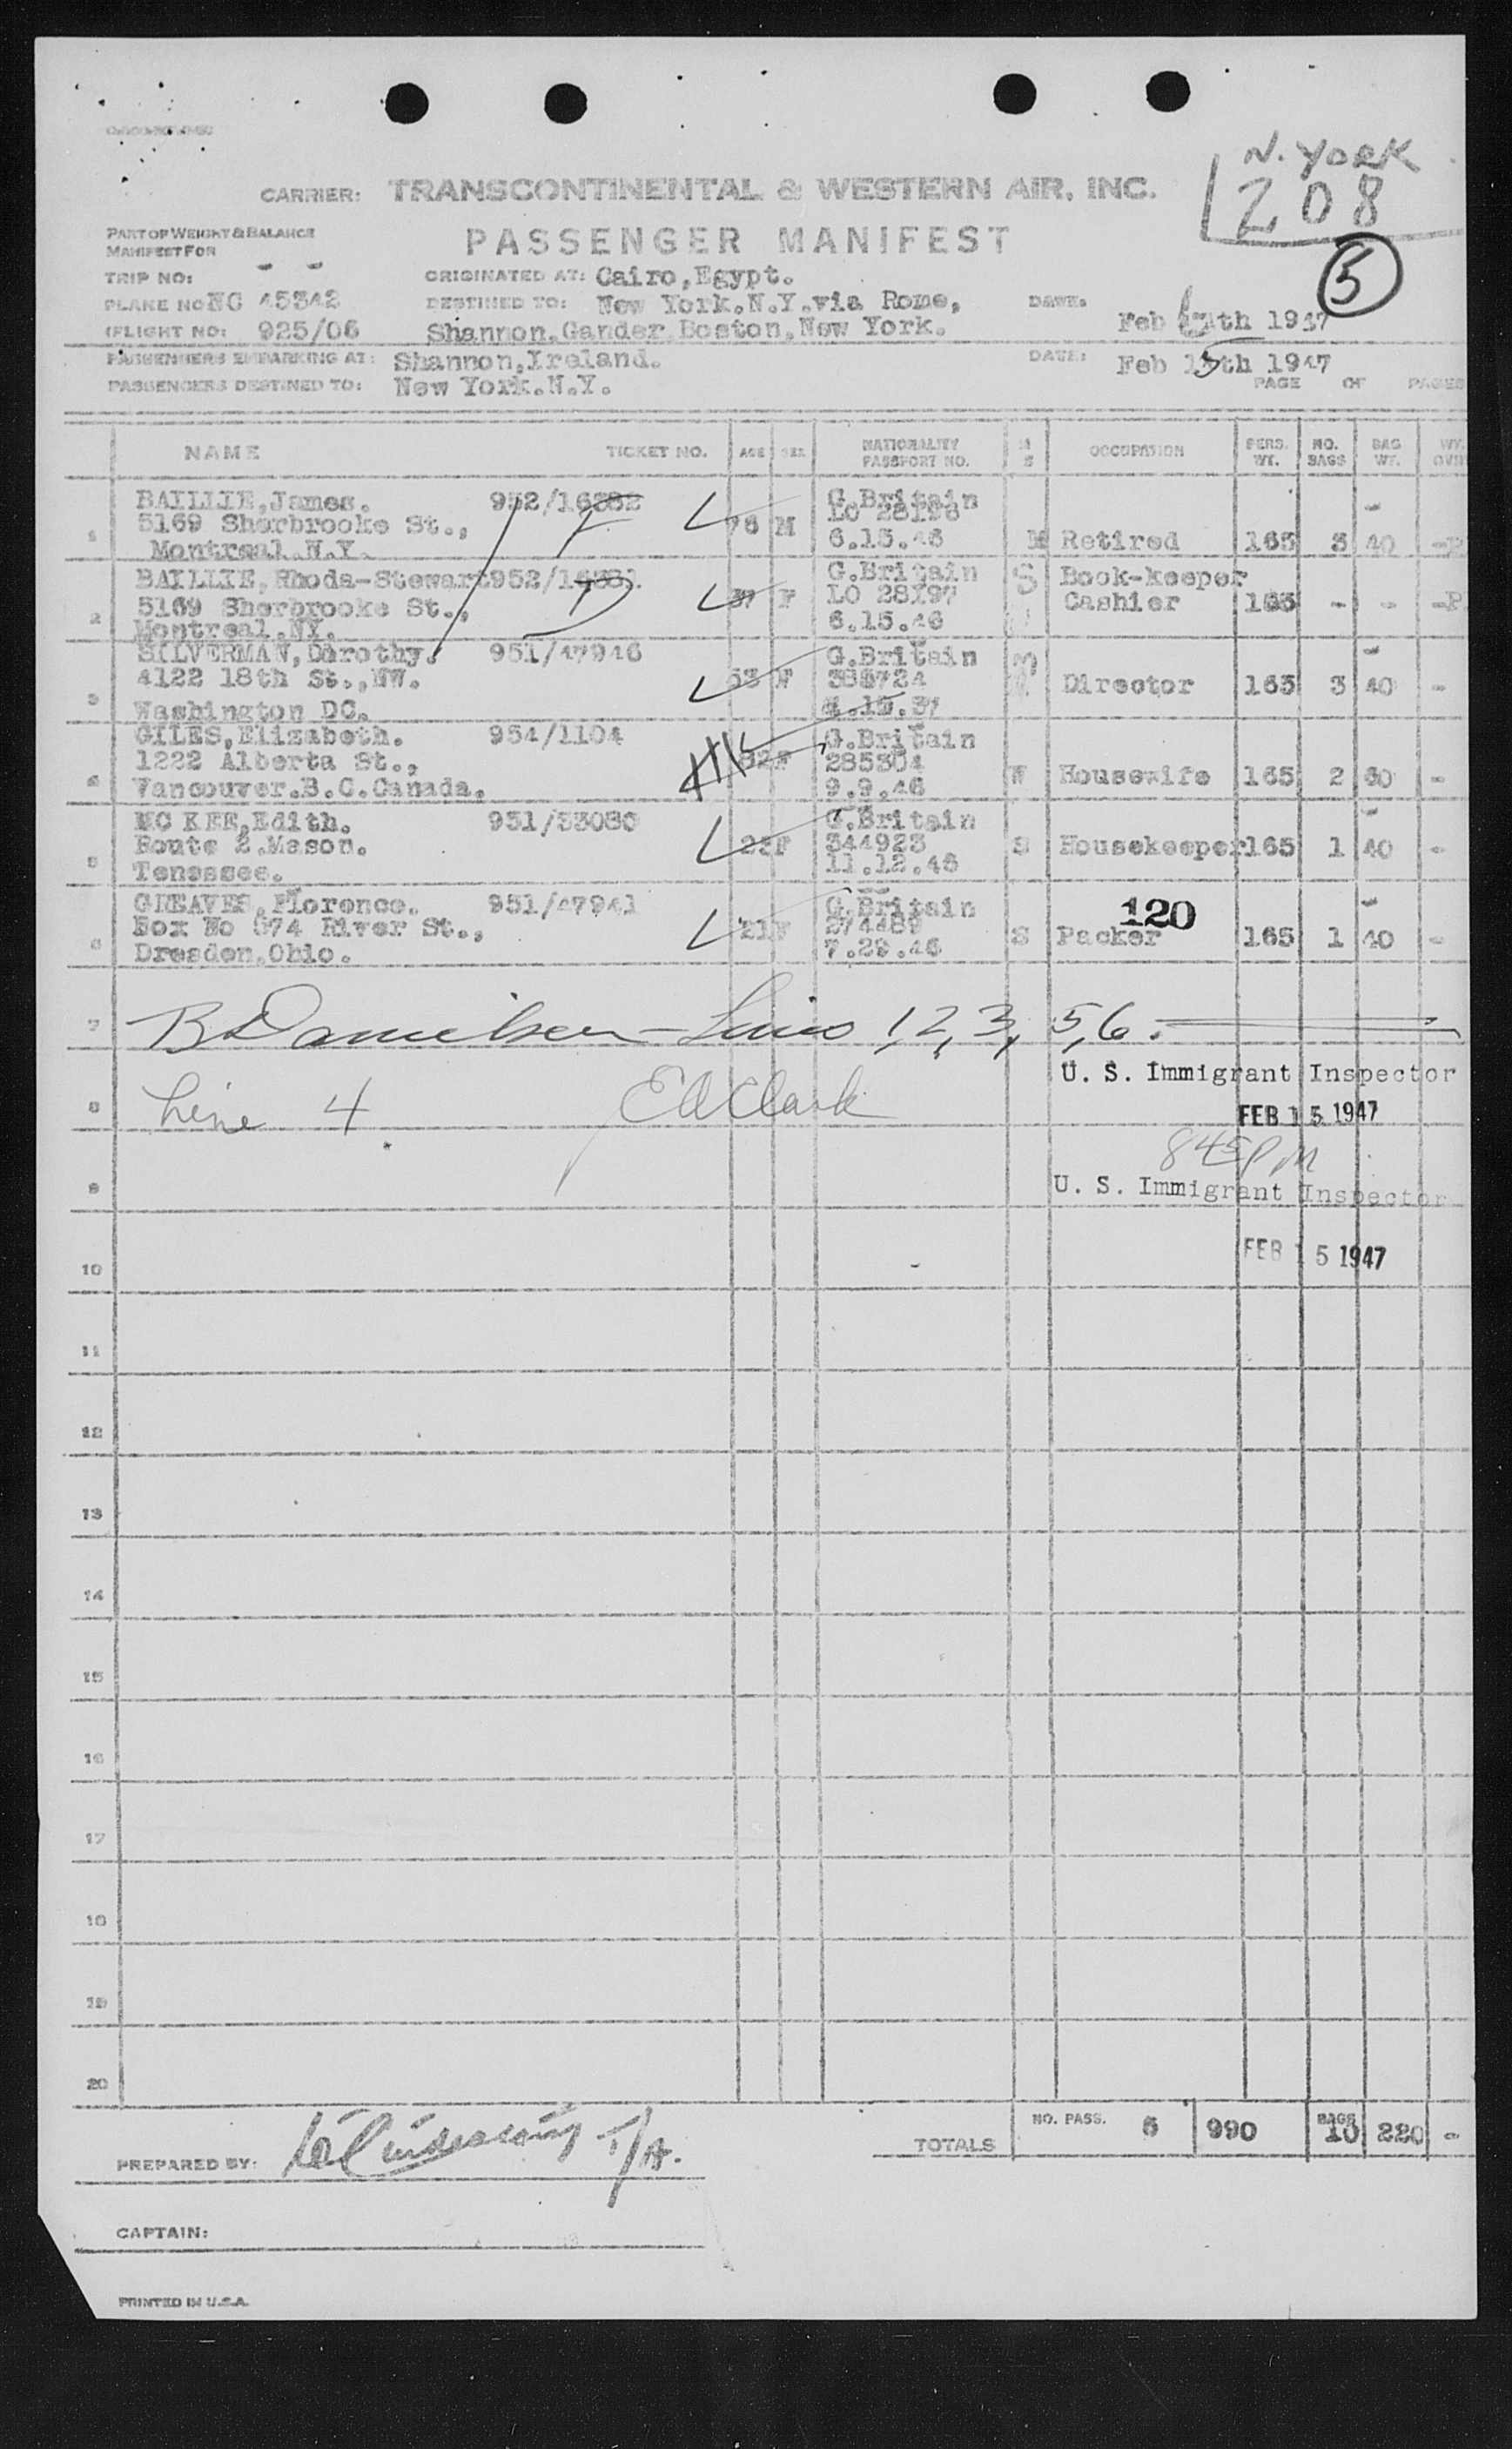 N. YORK
208
5
CARRIER: TRANSCONTINENTAL & WESTERN AIR, INC.
PART OF WEIGHT & BALANCE
MANIFEST FOR
PASSENGER MANIFEST
TRIP NO: - -
ORIGINATED AT: Cairo,Egypt.
PLANE NO NC 45342
DESTINED TO: New York.N.Y.via Rome,
DATE:
FLIGHT NO: 925/06
Shannon,Gander,Boston,New York.
Feb th 1947
PASSENGERS EMBARKING AT: Shannon,Ireland.
DATE: Feb 15th 1947
PASSENGERS DESTINED TO: New York.N.Y.
PAGE OF PAGES
NAME TICKET NO. AGE SEX NATIONALITY PASSPORT NO. M S OCCUPATION PERS. WT. NO. BAGS BAG WT.
1 BAILLIE,James. 952/16382 76 M G.Britain
5169 Sherbrooke St., LO 28196
Montreal.N.Y. 6.15.46 M Retired 165 3 40 -
2 BAILLIE,Rhoda-Stewart 952/16381 37 F G.Britain S Book-keeper
5169 Sherbrooke St., LO 28197 Cashier 165 - - -
Montreal.NY. 6.15.46
3 SILVERMAN,Dorothy. 951/47946 G.Britain
4122 18th St.,NW. 53 385724 Director 165 3 40 -
Washington DC. .15.37
4 GILES,Elizabeth. 954/1104 G.Britain
1222 Alberta St., 32 F 285304
Vancouver.B.C.Canada. 9.9.46 W Housewife 165 2 60 -
5 MC KEE,Edith. 951/33080 G.Britain
Route 2.Mason. 23 F 344923 S Housekeeper 165 1 40 -
Tenessee. 11.12.46
6 GREAVES,Florence. 951/47941 G.Britain 120
Box No 574 River St., 21 F 274489 S Packer 165 1 40 -
Dresden,Ohio. 7.29.46
7 B Danielsen - Lines 1,2,3, 5,6.
U. S. Immigrant Inspector
8 Line 4 Ed Clark
FEB 15 1947
845 PM
9 U. S. Immigrant Inspector
10 FEB 15 1947
11
12
13
14
15
16
17
18
19
20
TOTALS NO. PASS. 6 990 BAGS 10 220 -
PREPARED BY: T/A.
CAPTAIN:
PRINTED IN U.S.A.